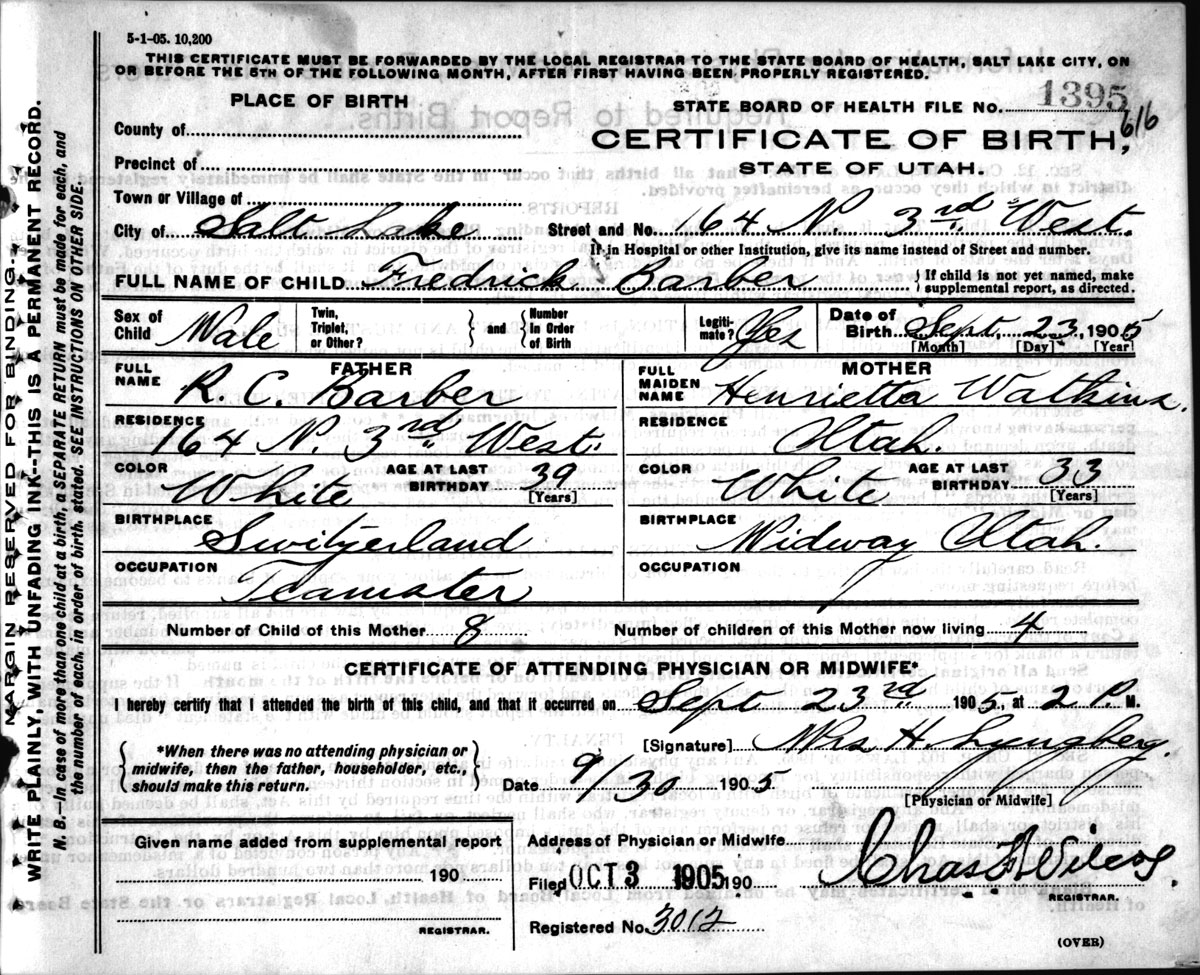 5-1-05. 10,200
THIS CERTIFICATE MUST BE FORWARDED BY THE LOCAL REGISTRAR TO THE STATE BOARD OF HEALTH, SALT LAKE CITY, ON
OR BEFORE THE 5TH OF THE FOLLOWING MONTH, AFTER FIRST HAVING BEEN PROPERLY REGISTERED.
PLACE OF BIRTH
STATE BOARD OF HEALTH FILE NO. 1395
616
County of
CERTIFICATE OF BIRTH,
Precinct of
STATE OF UTAH.
Town or Village of
City of Salt Lake Street and No. 164 N. 3rd West.
If in Hospital or other Institution, give its name instead of Street and number.
FULL NAME OF CHILD Fredrick Barber { If child is not yet named, make supplemental report, as directed.
Sex of Child Male Twin, Triplet, or Other? } and { Number In Order of Birth Legiti-mate? Yes Date of Birth Sept. 23 1905
[Month] [Day] [Year]
FATHER
FULL NAME R. C. Barber
RESIDENCE 164 N. 3rd West.
COLOR White AGE AT LAST BIRTHDAY 39 [Years]
BIRTHPLACE Switzerland
OCCUPATION Teamster
MOTHER
FULL MAIDEN NAME Henrietta Watkins.
RESIDENCE Utah.
COLOR White AGE AT LAST BIRTHDAY 33 [Years]
BIRTHPLACE Midway Utah.
OCCUPATION
Number of Child of this Mother 8 Number of children of this Mother now living 4
CERTIFICATE OF ATTENDING PHYSICIAN OR MIDWIFE*
I hereby certify that I attended the birth of this child, and that it occurred on Sept 23rd 1905, at 2 P. M.
{ *When there was no attending physician or midwife, then the father, householder, etc., should make this return. }
[Signature] Mrs H. Lyngberg.
Date 9/30 1905
[Physician or Midwife]
Given name added from supplemental report
190
REGISTRAR.
Address of Physician or Midwife
Filed OCT 3 1905 190
REGISTRAR.
Registered No. 3012
(OVER)
MARGIN RESERVED FOR BINDING.
WRITE PLAINLY, WITH UNFADING INK--THIS IS A PERMANENT RECORD.
N. B.--In case of more than one child at a birth, a SEPARATE RETURN must be made for each, and
the number of each, in order of birth, stated. SEE INSTRUCTIONS ON OTHER SIDE.